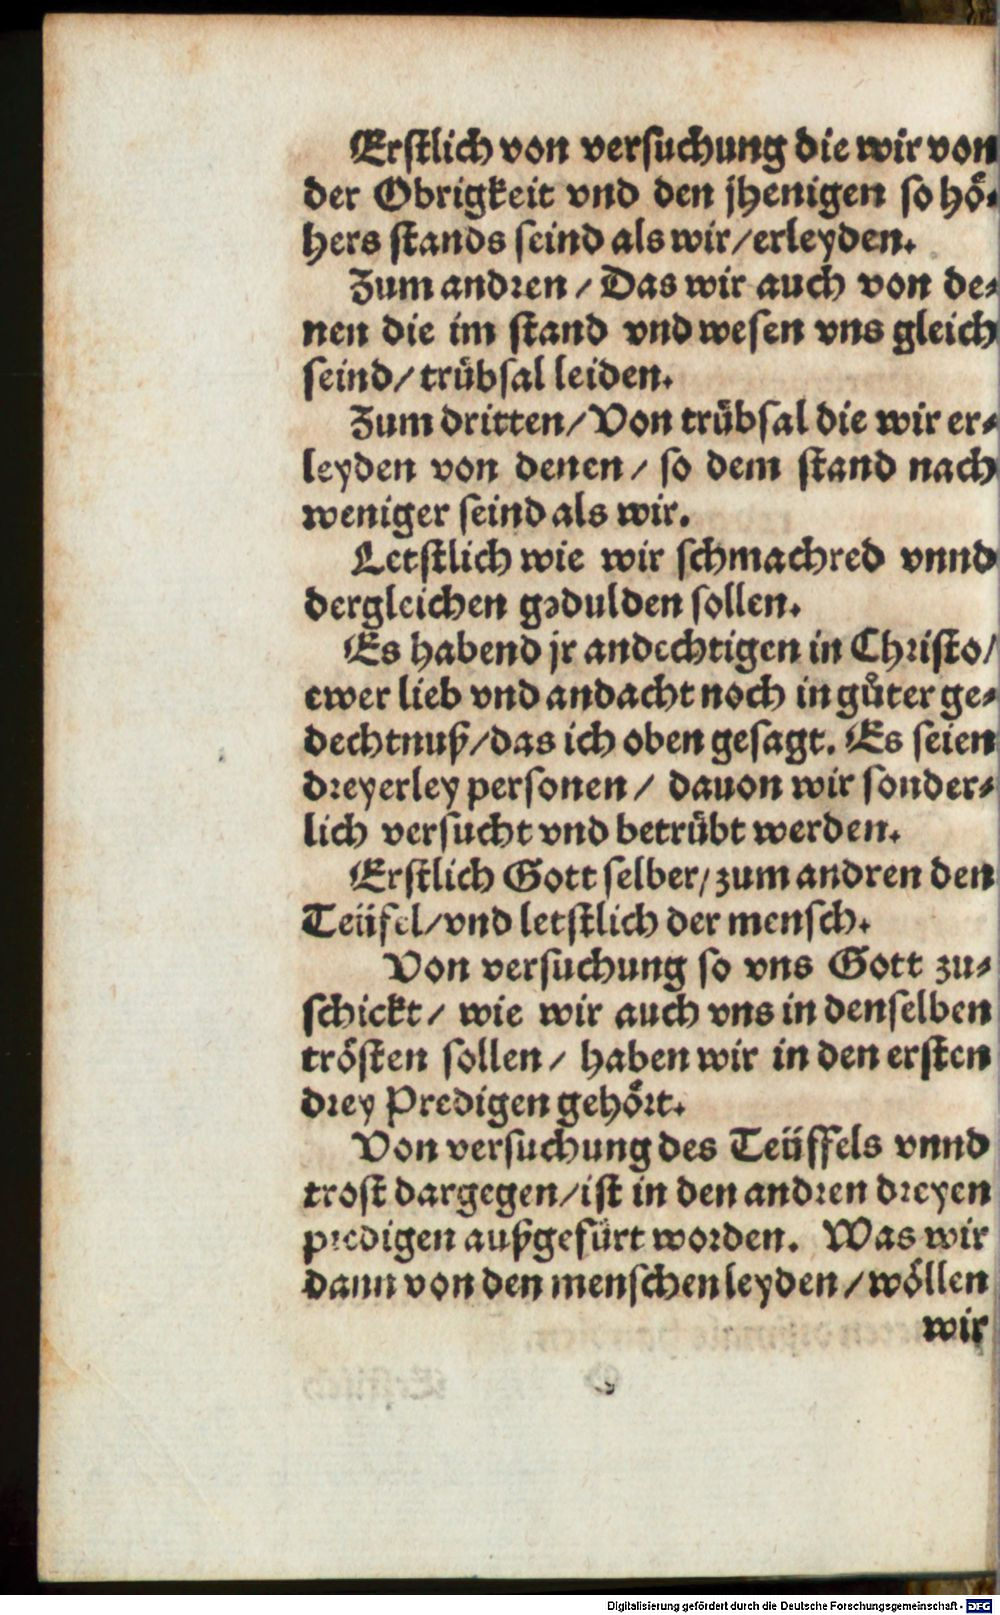 Erstlich von versuchung die wir von
der Obrigkeit vnd den jhenigen so hö-
hers stands seind als wir/erleyden.
Zum andren/Das wir auch von de-
nen die im stand vnd wesen vns gleich
seind/trübsal leiden.
Zum dritten/Von trübsal die wir er-
leyden von denen/so dem stand nach
weniger seind als wir.
Letstlich wie wir schmachred vnnd
dergleichen gedulden sollen.
Es habend jr andechtigen in Christo/
ewer lieb vnd andacht noch in gůter ge-
dechtnuß/das ich oben gesagt. Es seien
dreyerley personen/dauon wir sonder-
lich versucht vnd betrübt werden.
Erstlich Gott selber/zum andren den
Teüfel/vnd letstlich der mensch.
Von versuchung so vns Gott zu-
schickt/wie wir auch vns in denselben
trösten sollen/haben wir in den ersten
drey Predigen gehört.
Von versuchung des Teüffels vnnd
trost dargegen/ist in den andren dreyen
predigen außgefürt worden. Was wir
dann von den menschen leyden/wöllen
wir
Digitalisierung gefördert durch die Deutsche Forschungsgemeinschaft - DFG